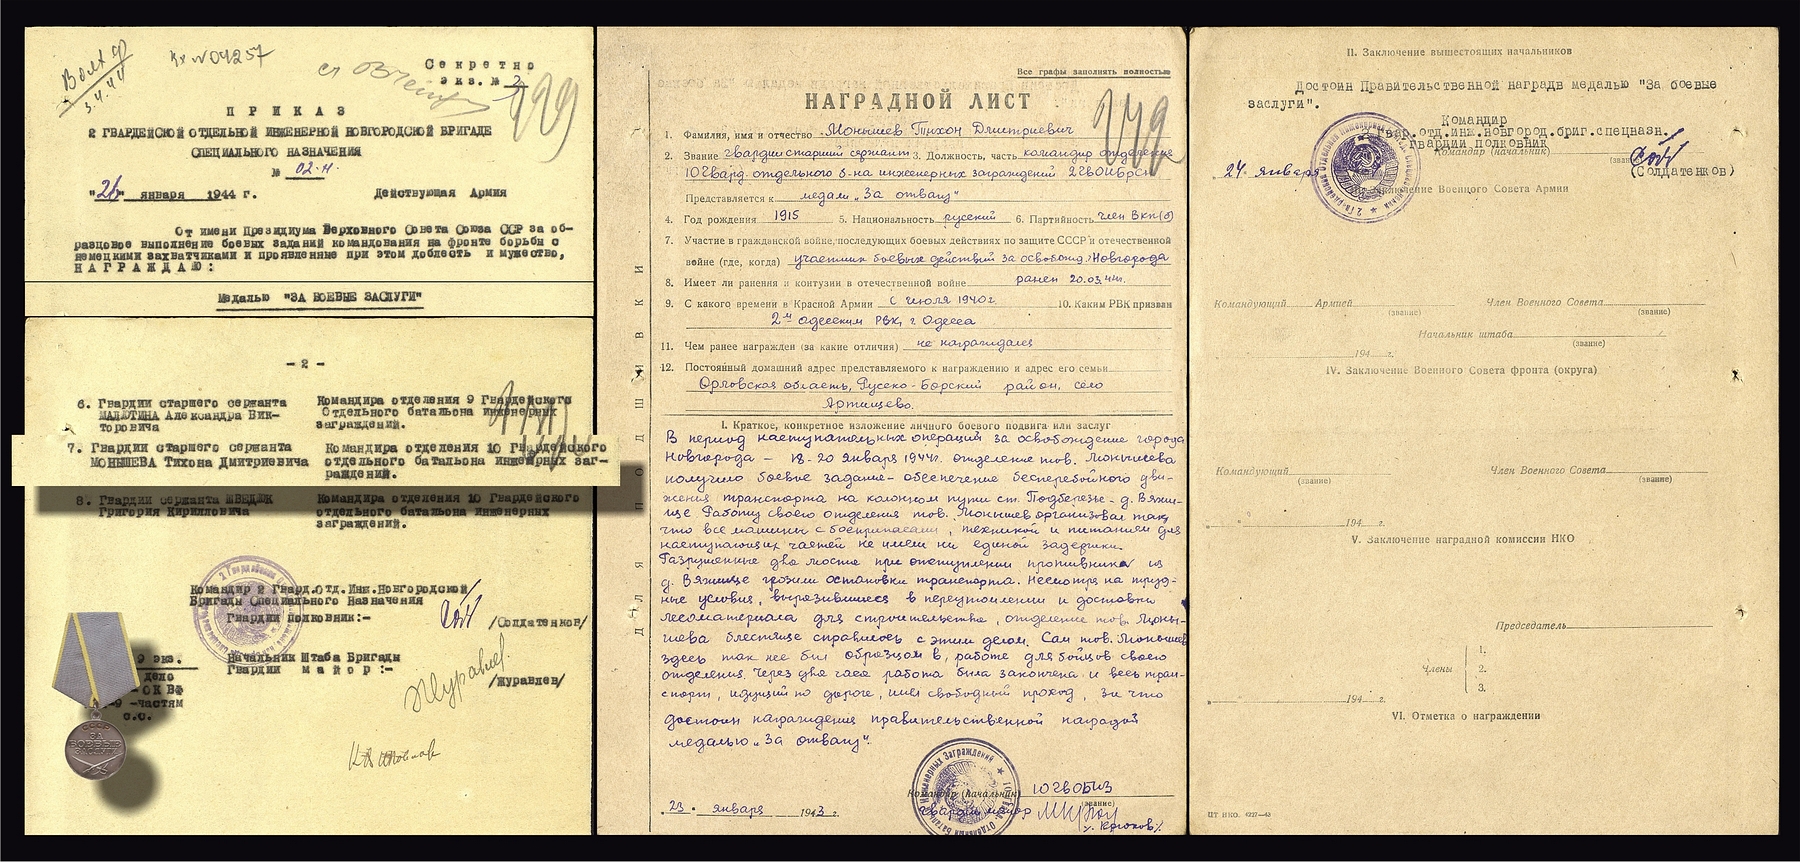 Волх ф
3.4.44
Вх №04257
Секретно
экз.№ 3
ПРИКАЗ
2 ГВАРДЕЙСКОЙ ОТДЕЛЬНОЙ ИНЖЕНЕРНОЙ НОВГОРОДСКОЙ БРИГАДЕ
СПЕЦИАЛЬНОГО НАЗНАЧЕНИЯ
№ 02-н.
"26" января 1944 г. Действующая Армия
От имени Президиума Верховного Совета Союза ССР за об-
разцовое выполнение боевых заданий командования на фронте борьбы с
немецкими захватчиками и проявленные при этом доблесть и мужество,
НАГРАЖДАЮ:
Медалью "ЗА БОЕВЫЕ ЗАСЛУГИ"
- 2 -
6. Гвардии старшего сержанта Командира отделения 9 Гвардейского
МАЛЮТИНА Александра Вик- Отдельного батальона инженерных
торовича заграждений.
7. Гвардии старшего сержанта Командира отделения 10 Гвардейского
МОНЫШЕВА Тихона Дмитриевича отдельного батальона инженерных заг-
раждений.
8. Гвардии сержанта ШВЕДЮК Командира отделения 10 Гвардейского
Григория Кирилловича отдельного батальона инженерных
заграждений.
Командир 2 Гвард.Отд.Инж.Новгородской
Бригады Специального Назначения
Гвардии Полковник:- /Солдатенков/
Начальник Штаба Бригады
Гвардии майор:- /Журавлев/
9 экз.
дело
-ОК ВФ
-9 -частям
с.о.
СССР
ЗА
БОЕВЫЕ
ЗАСЛУГИ
ДЛЯ ПОДШИВКИ
Все графы заполнять полностью
НАГРАДНОЙ ЛИСТ
1. Фамилия, имя и отчество Монышев Тихон Дмитриевич
2. Звание гвардии старший сержант 3. Должность, часть командир отделения
10 Гвард. отдельного б-на инженерных заграждений 2 ГвОИБрСН
Представляется к медали "За отвагу"
4. Год рождения 1915 5. Национальность русский 6. Партийность член Вкп(б)
7. Участие в гражданской войне, последующих боевых действиях по защите СССР и отечественной
войне (где, когда) участник боевых действий за освобожд. Новгорода
8. Имеет ли ранения и контузии в отечественной войне ранен 20.03.44г.
9. С какого времени в Красной Армии С июля 1940г. 10. Каким РВК призван
2м Одесским РВК, г. Одесса
11. Чем ранее награжден (за какие отличия) не награждался
12. Постоянный домашний адрес представляемого к награждению и адрес его семьи
Орловская область, Русско-Борский район, село
Артищево.
I. Краткое, конкретное изложение личного боевого подвига или заслуг
В период наступательных операций за освобождение города
Новгорода – 18-20 января 1944г. отделение тов. Монышева
получило боевое задание - обеспечение бесперебойного дви-
жения транспорта на колонном пути ст. Подберезье - д. Вяжи-
ще Работу своего отделения тов. Монышев организовал так,
что все машины с боеприпасами, техникой и питанием для
наступающих частей не имели ни единой задержки.
Разрушенные два моста при отступлении противника из
д. Вяжище грозили остановки транспорта. Несмотря на труд-
ные условия, выразившиеся в переутомлении и доставки
лесоматериала для строительства, отделение тов. Моны-
шева блестяще справилось с этим делом. Сам тов. Монышев
здесь так же был образцом в работе для бойцов своего
отделения. Через два часа работа была закончена и весь тран-
спорт, идущий по дороге, имел свободный проход, за что
достоин награждения правительственной наградой
медалью "За отвагу".
Командир (начальник) 10 ГвОБИЗ
(звание)
Гвардии майор
/Крюков/
"23" января 1943 г.
II. Заключение вышестоящих начальников
Достоин Правительственной награды медалью "За боевые
заслуги".
Командир
гвар.отд.инж.новгород.бриг.спецназн.
гвардии полковник
Командир (начальник)
(звание)
24 января (Солдатенков)
III. Заключение Военного Совета Армии
Командующий Армией Член Военного Совета
(звание) (звание)
Начальник штаба
(звание)
194 г.
IV. Заключение Военного Совета фронта (округа)
Командующий Член Военного Совета
(звание) (звание)
" " 194 г.
V. Заключение наградной комиссии НКО
Председатель
Члены
1.
2.
3.
194 г.
VI. Отметка о награждении
ЦТ НКО. 4227—43